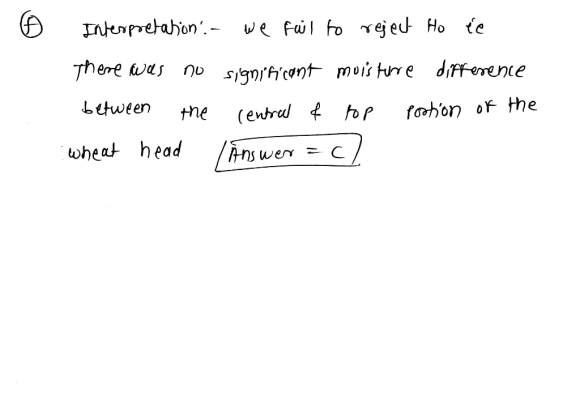 (f) Interpretation:- we fail to reject Ho ie
There was no significant moisture difference
between the central & top portion of the
wheat head Answer = C